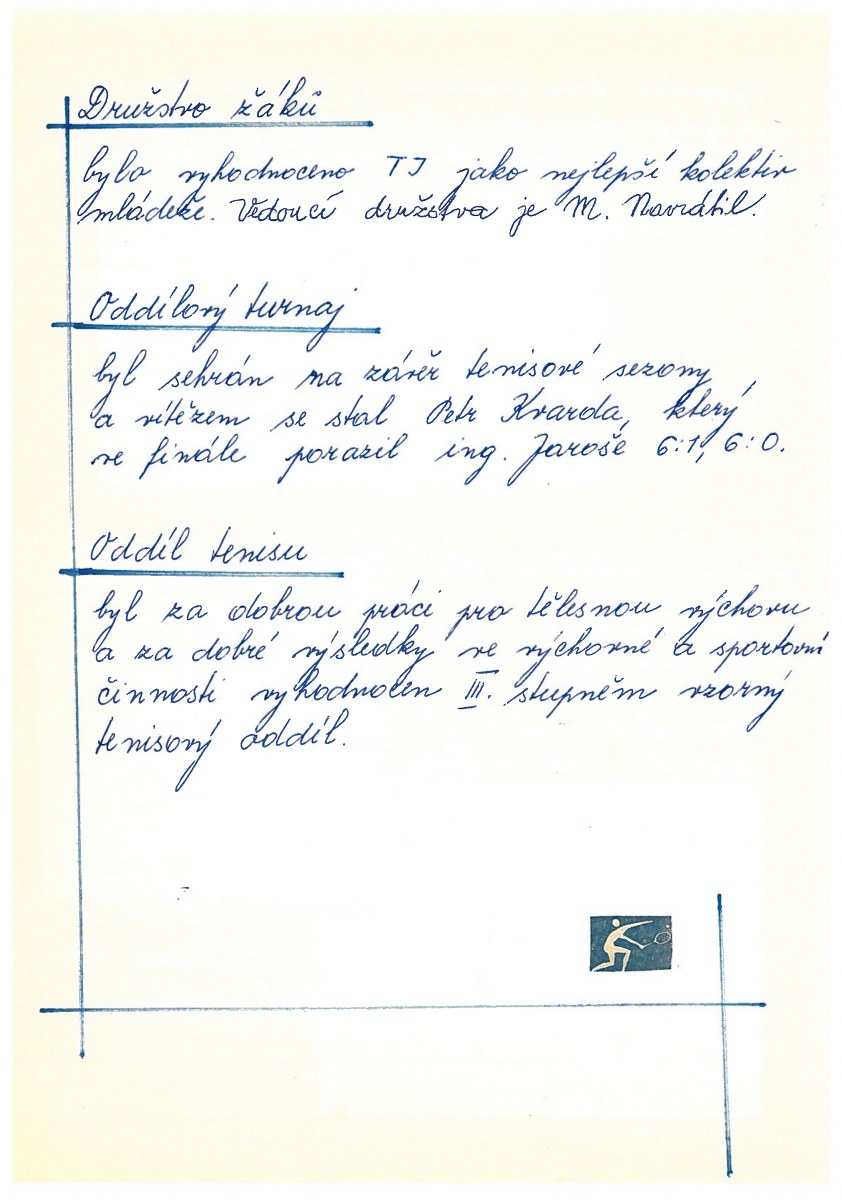 Družstvo žáků
bylo vyhodnoceno TJ jako nejlepší kolektiv
mládeže. Vedoucí družstva je M. Navrátil.
Oddílový turnaj
byl sehrán na závěr tenisové sezony
a vítězem se stal Petr Kvarda, který
ve finále porazil ing. Jaroše 6:1, 6:0.
Oddíl tenisu
byl za dobrou práci pro tělesnou výchovu
a za dobré výsledky ve výchovné a sportovní
činnosti vyhodnocen III. stupněm vzorný
tenisový oddíl.